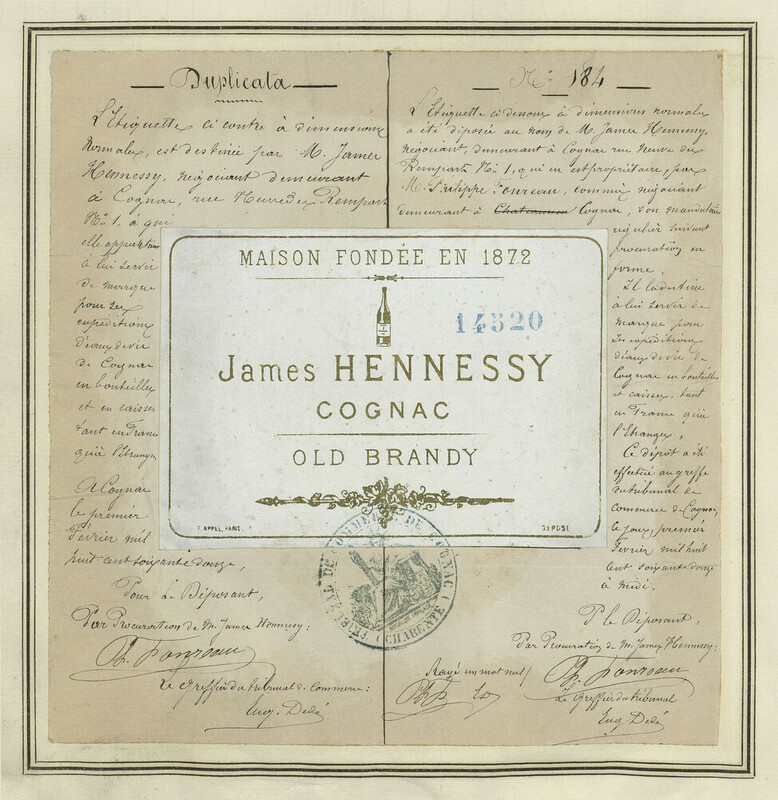 Duplicata
L'Etiquette ci contre à dimensions
normales, est destinée par M. James
Hennessy, négociant demeurant
à Cognac, rue Neuve du Rempart
N° 1, à qui
elle appartient
à lui servir
de marque
pour ses
expéditions
d'eaux de vie
de Cognac
en bouteilles
et en caisses
tant en France
qu'à l'Etranger
A Cognac
le premier
février mil
huit cent soixante douze,
Pour Le Déposant,
Par Procuration de M. James Hennessy:
Ph. Fonreau
Le Greffier du tribunal de Commerce:
Eug. Dedé
N° 184
L'Etiquette ci dessous à dimensions normales
a été déposée au nom de M. James Hennessy,
négociant, demeurant à Cognac rue Neuve du
Rempart N° 1, qui en est propriétaire, par
M. Philippe Fonreau, commis négociant
demeurant à Cognac, son mandataire
régulier suivant
procuration en
forme.
Il la destine
à lui servir de
marque pour
ses expéditions
d'eaux de vie de
Cognac en bouteilles
et caisses, tant
en France qu'à
l'Etranger,
Ce dépôt a été
effectué au greffe
du tribunal de
Commerce de Cognac,
le jour, premier
février mil huit
cent soixante douze
à midi.
P. le Déposant,
Par Procuration de M. James Hennessy:
Rayé un mot nul
Ph. Fonreau
Le Greffier du tribunal
Eug. Dedé
MAISON FONDÉE EN 1872
14520
James HENNESSY
COGNAC
OLD BRANDY
F. APPEL, PARIS.
DÉPOSÉ.
TRIBUNAL DE COMMERCE DE COGNAC
CHARENTE